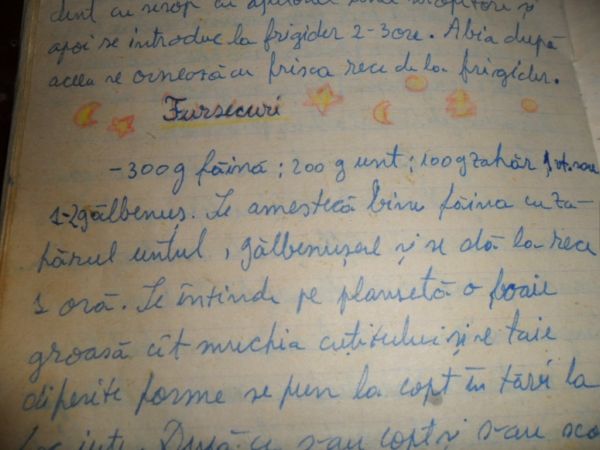 dint cu sirop cu ajutorul unui stropitor și
apoi se introduc la frigider 2-3 ore. Abia după
aceea se ornează cu frișca rece de la frigider.
Fursecuri
-300g făină; 200 g unt; 100g zahăr, vt. sau
1-2 gălbenuș. Se amestecă bine făina cu za-
hărul untul, gălbenușele și se dă la rece
1 oră. Se întinde pe planșetă o foaie
groasă cît muchia cuțitului și se taie
diferite forme se pun la copt în tăvi la
foc iute. După ce s-au copt și s-au sco